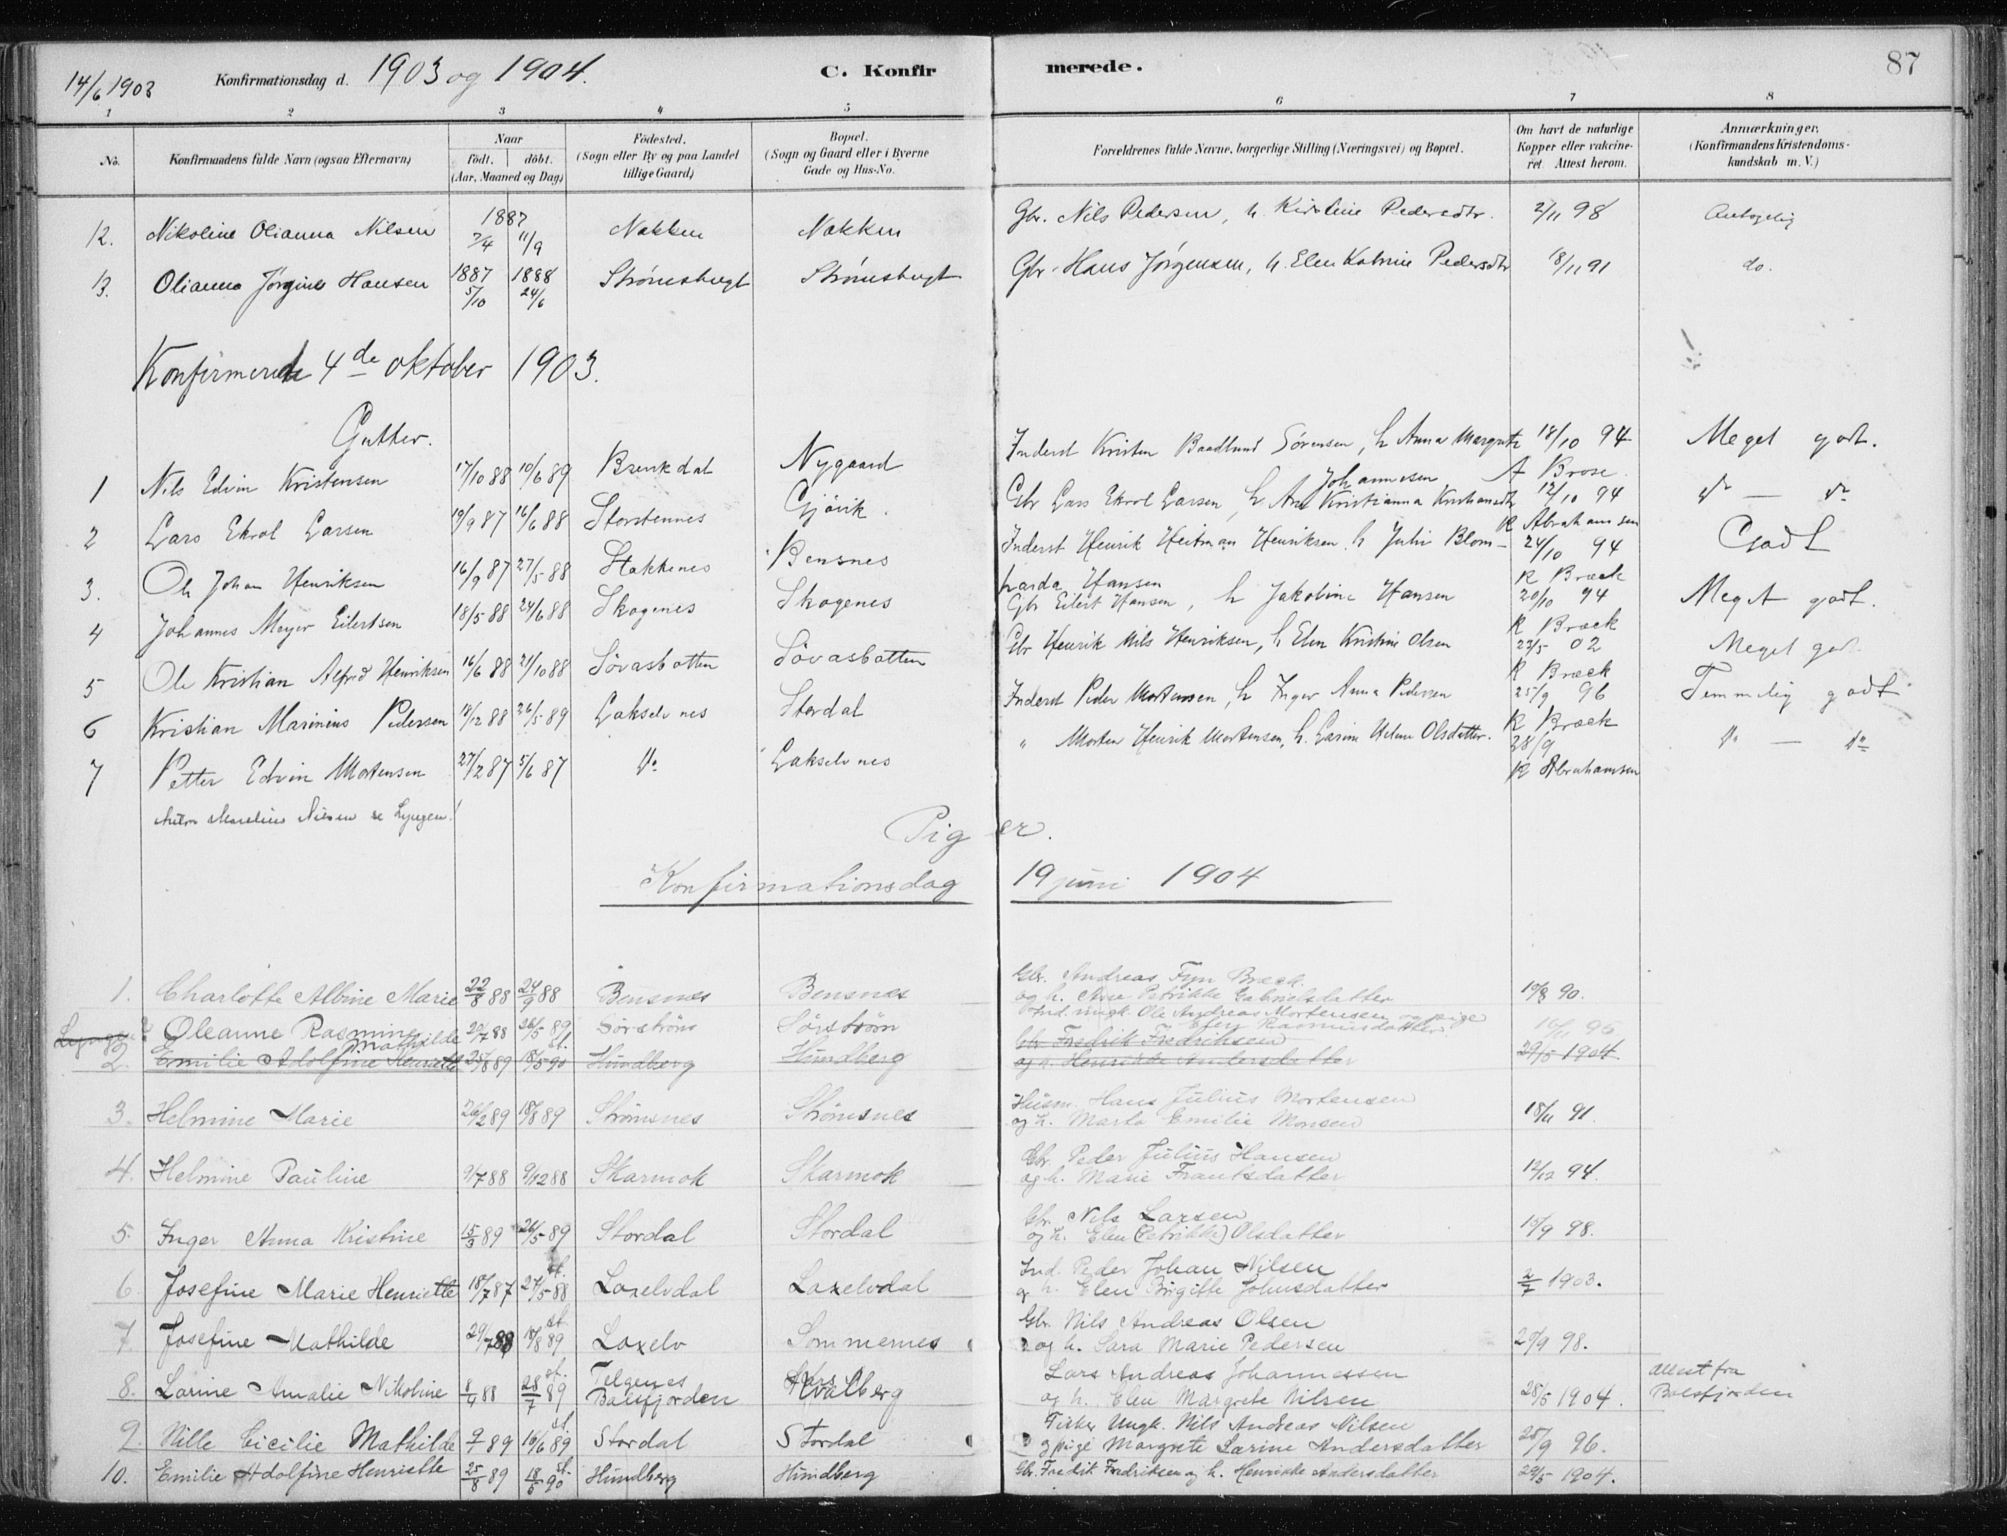 87
14/6 1903 Konfirmationsdag d. 1903 og 1904. C. Konfirmerede.
1 2 3 4 5 6 7 8
No. Konfirmandens fulde Navn (ogsaa Efternavn) Naar födt. döbt. (Aar, Maaned og Dag) Födested. (Sogn eller By og paa Landet tillige Gaard) Bopæl. (Sogn og Gaard eller i Byerne Gade og Hus-No. Forældrenes fulde Navne, borgerlige Stilling (Næringsvei) og Bopæl. Om havt de naturlige Kopper eller vakcineret Attest herom. Anmærkninger. (Konfirmandens Kristendomskundskab m. V.)
12. Nikoline Olianna Nilsen 1887 7/4 11/9 Nakken Nakken Gbr. Nils Pedersen, h. Kirstine Pedersdtr. 2/11 98 Antagelig
13. Olianna Jørgine Hansen 1887 5/10 1888 24/6 Strømsbugt Strømsbugt Gbr. Hans Jørgensen, h. Elen Katrine Pedersdtr 18/11 91 do.
Konfirmerede 4de oktober 1903.
Gutter.
1 Nils Edvin Kristensen 17/10 88 10/6 89 Brenkdal Nygaard Inderst Kristen Baadlund Sørensen, h Anna Margrete Johannesen 18/10 94 A Brose Meget godt.
2 Lars Ekrol Larsen 19/9 87 16/6 88 Storstennes Gjövik. Gbr Lars Ekrol Larsen, h Ane Kristianna Kristiansdtr 12/10 94 K Abrahamsen do — do
3. Ole Johan Henriksen 16/9 87 27/5 88 Stakkenes Bensnes Inderst Henrik Heitman Henriksen h Julie Blom- 24/10 94 K Bræck Godt
4 Johannes Meyer Eilertsen 18/5 88 24/6 88 Skogenes Skogenes Gbr Eilert Hansen, h Jakobine Hansen 20/10 94 K Bræck Meget godt.
5 Ole Kristian Alfred Henriksen 16/6 88 21/10 88 Sövasbotten Sövasbotten Gbr Henrik Nils Henriksen, h Elen Kristine Olsen 23/5 02 K Bræck Meget godt.
6 Kristian Marinius Pedersen 12/12 88 26/5 89 Lakselvnes Stordal Inderst Peder Mortensen, h Inger Anna Pedersen 25/9 96 K Bræck Temmelig godt
7 Petter Edvin Mortensen 27/2 87 5/6 87 do Lakselvnes " Morten Henrik Mortensen, h. Larine Helene Olsdatter. 28/9 K Abrahamsen do — do
Anton Marelius Nilsen se Lyngen!
Piger.
Konfirmationsdag 19 juni 1904
1. Charlotte Albine Marie 22/8 88 24/9 88 Bensnes Bensnes Gbr. Andreas Fyn Bræck og h. Ane Petrikke Gabrielsdatter 10/8 90.
Lyngen? Oleanne Rasmine Mathilde 20/7 88 26/5 89 Sörström Sörström Ind. ungk. Ole Andreas Mortensen og pige Rasmusdatter 16/11 96
2. Emilie Adolfine Henriette 25/8 89 18/5 90 Hundberg Hundberg Gbr. Fredrik Fredriksen og h. Henrikke Andersdatter 29/5 1904.
3. Helmine Marie 26/2 89 18/8 89 Strömsnes Strömsnes Husm. Hans Julius Mortensen og h. Marta Emilie Monsen 18/11 91.
4. Helmine Pauline 9/7 88 9/12 88 Skarmok Skarmok Gbr. Peder Julius Hansen og h. Marie Frantsdatter 12/12 94.
5. Inger Anna Kristine 15/3 89 26/5 89 Stordal Stordal Gbr. Nils Larsen og h. Elen (Petrikke) Olsdatter 15/9 98.
6. Josefine Marie Henriette 18/7 87 27/5 88 Laxelvdal Laxelvdal Ind. Peder Johan Nilsen og h. Elen Birgitte Johnsdatter 2/7 1903.
7. Josefine Mathilde 29/7 88 18/8 89 Laxelv Sommernes Gbr. Nils Andreas Olsen og h. Sara Marie Pedersen 29/9 98.
8. Larine Amalie Nikoline 8/9 88 28/7 89 Balsfjorden Kvalberg Lars Andreas Johannessen og h. Elen Margrete Nilsen 28/5 1904. Attest fra Balsfjorden
9. Nille Cicilie Mathilde 9/7 89 10/6 89 Stordal Stordal Fisker Ungk. Nils Andreas Nilsen og pige Margrete Larine Andersdatter 25/9 96.
10. Emilie Adolfine Henriette 25/8 89 18/5 90 Hundberg Hundberg Gbr. Fredik Fredriksen og h. Henrikke Andersdatter 29/5 1904.